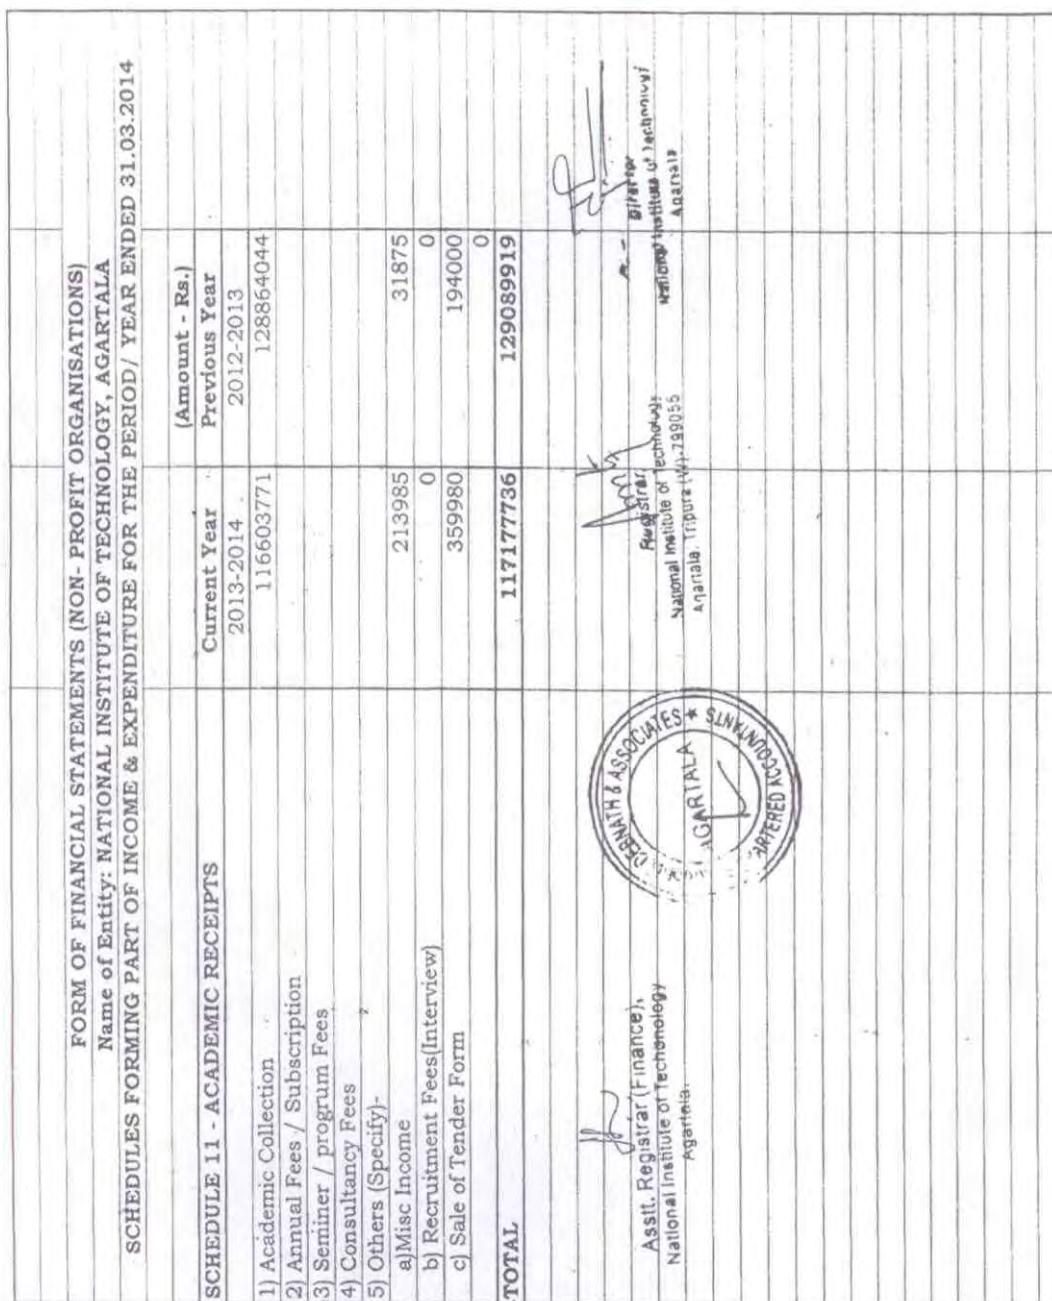 FORM OF FINANCIAL STATEMENTS (NON- PROFIT ORGANISATIONS)
Name of Entity: NATIONAL INSTITUTE OF TECHNOLOGY, AGARTALA
SCHEDULES FORMING PART OF INCOME & EXPENDITURE FOR THE PERIOD/ YEAR ENDED 31.03.2014
(Amount - Rs.)
SCHEDULE 11 - ACADEMIC RECEIPTS Current Year Previous Year
2013-2014 2012-2013
1) Academic Collection 116603771 128864044
2) Annual Fees / Subscription
3) Seminer / progrum Fees
4) Consultancy Fees
5) Others (Specify)-
a)Misc Income 213985 31875
b) Recruitment Fees(Interview) 0 0
c) Sale of Tender Form 359980 194000
0
TOTAL 117177736 129089919
Asstt. Registrar (Finance),
National Institute of Techonology
Agartala.
DEBNATH & ASSOCIATES ★
AGARTALA
ACCOUNTANTS
Registrar,
National Institute of Technology
Agartala, Tripura (W)-799055
Director
National Institute of Technology
Agartala